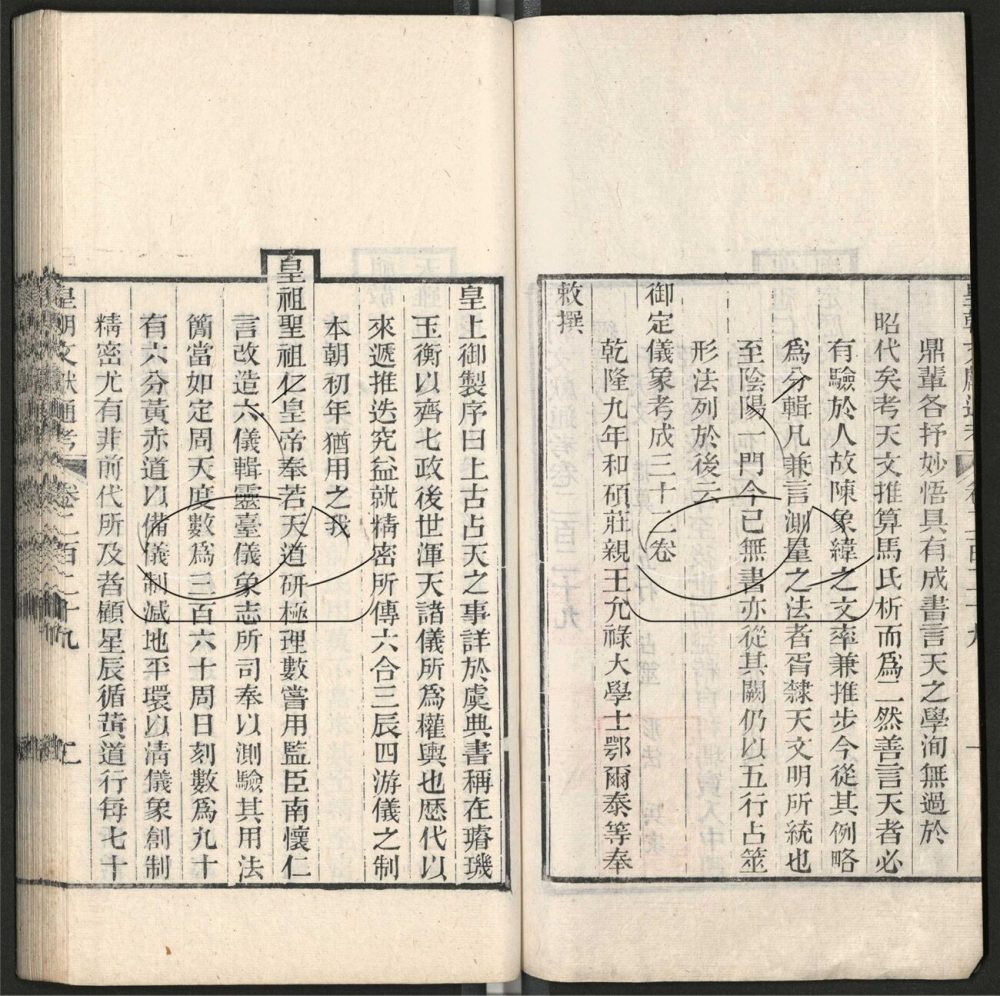 鼎輩各抒妙悟具有成書言天之學洵無過於
昭代矣考天文推算馬氏析而爲一然善言天者必
有驗於人故陳象緯之文率兼推步今從其例略
爲分輯凡兼言測量之法者胥隸天文明所統也
至陰陽一門今已無書亦從其闕仍以五行占筮
形法列於後云
御定儀象考成三十二卷
乾隆九年和碩莊親王允祿大學士鄂爾泰等奉
敕撰
皇上御製序曰上古占天之事詳於虞典書稱在璿璣
玉衡以齊七政後世渾天諸儀所爲權輿也歷代以
來遞推迭究益就精密所傳六合三辰四游儀之制
本朝初年猶用之我
皇祖聖祖仁皇帝奉若天道研極理數嘗用監臣南懷仁
言改造六儀輯靈臺儀象志所司奉以測驗其用法
簡當如定周天度數爲三百六十周日刻數爲九十
有六分黃赤道以備儀制減地平環以清儀象創制
精密尤有非前代所及者顧星辰循黃道行每七十
皇朝文獻通考 卷二百二十九